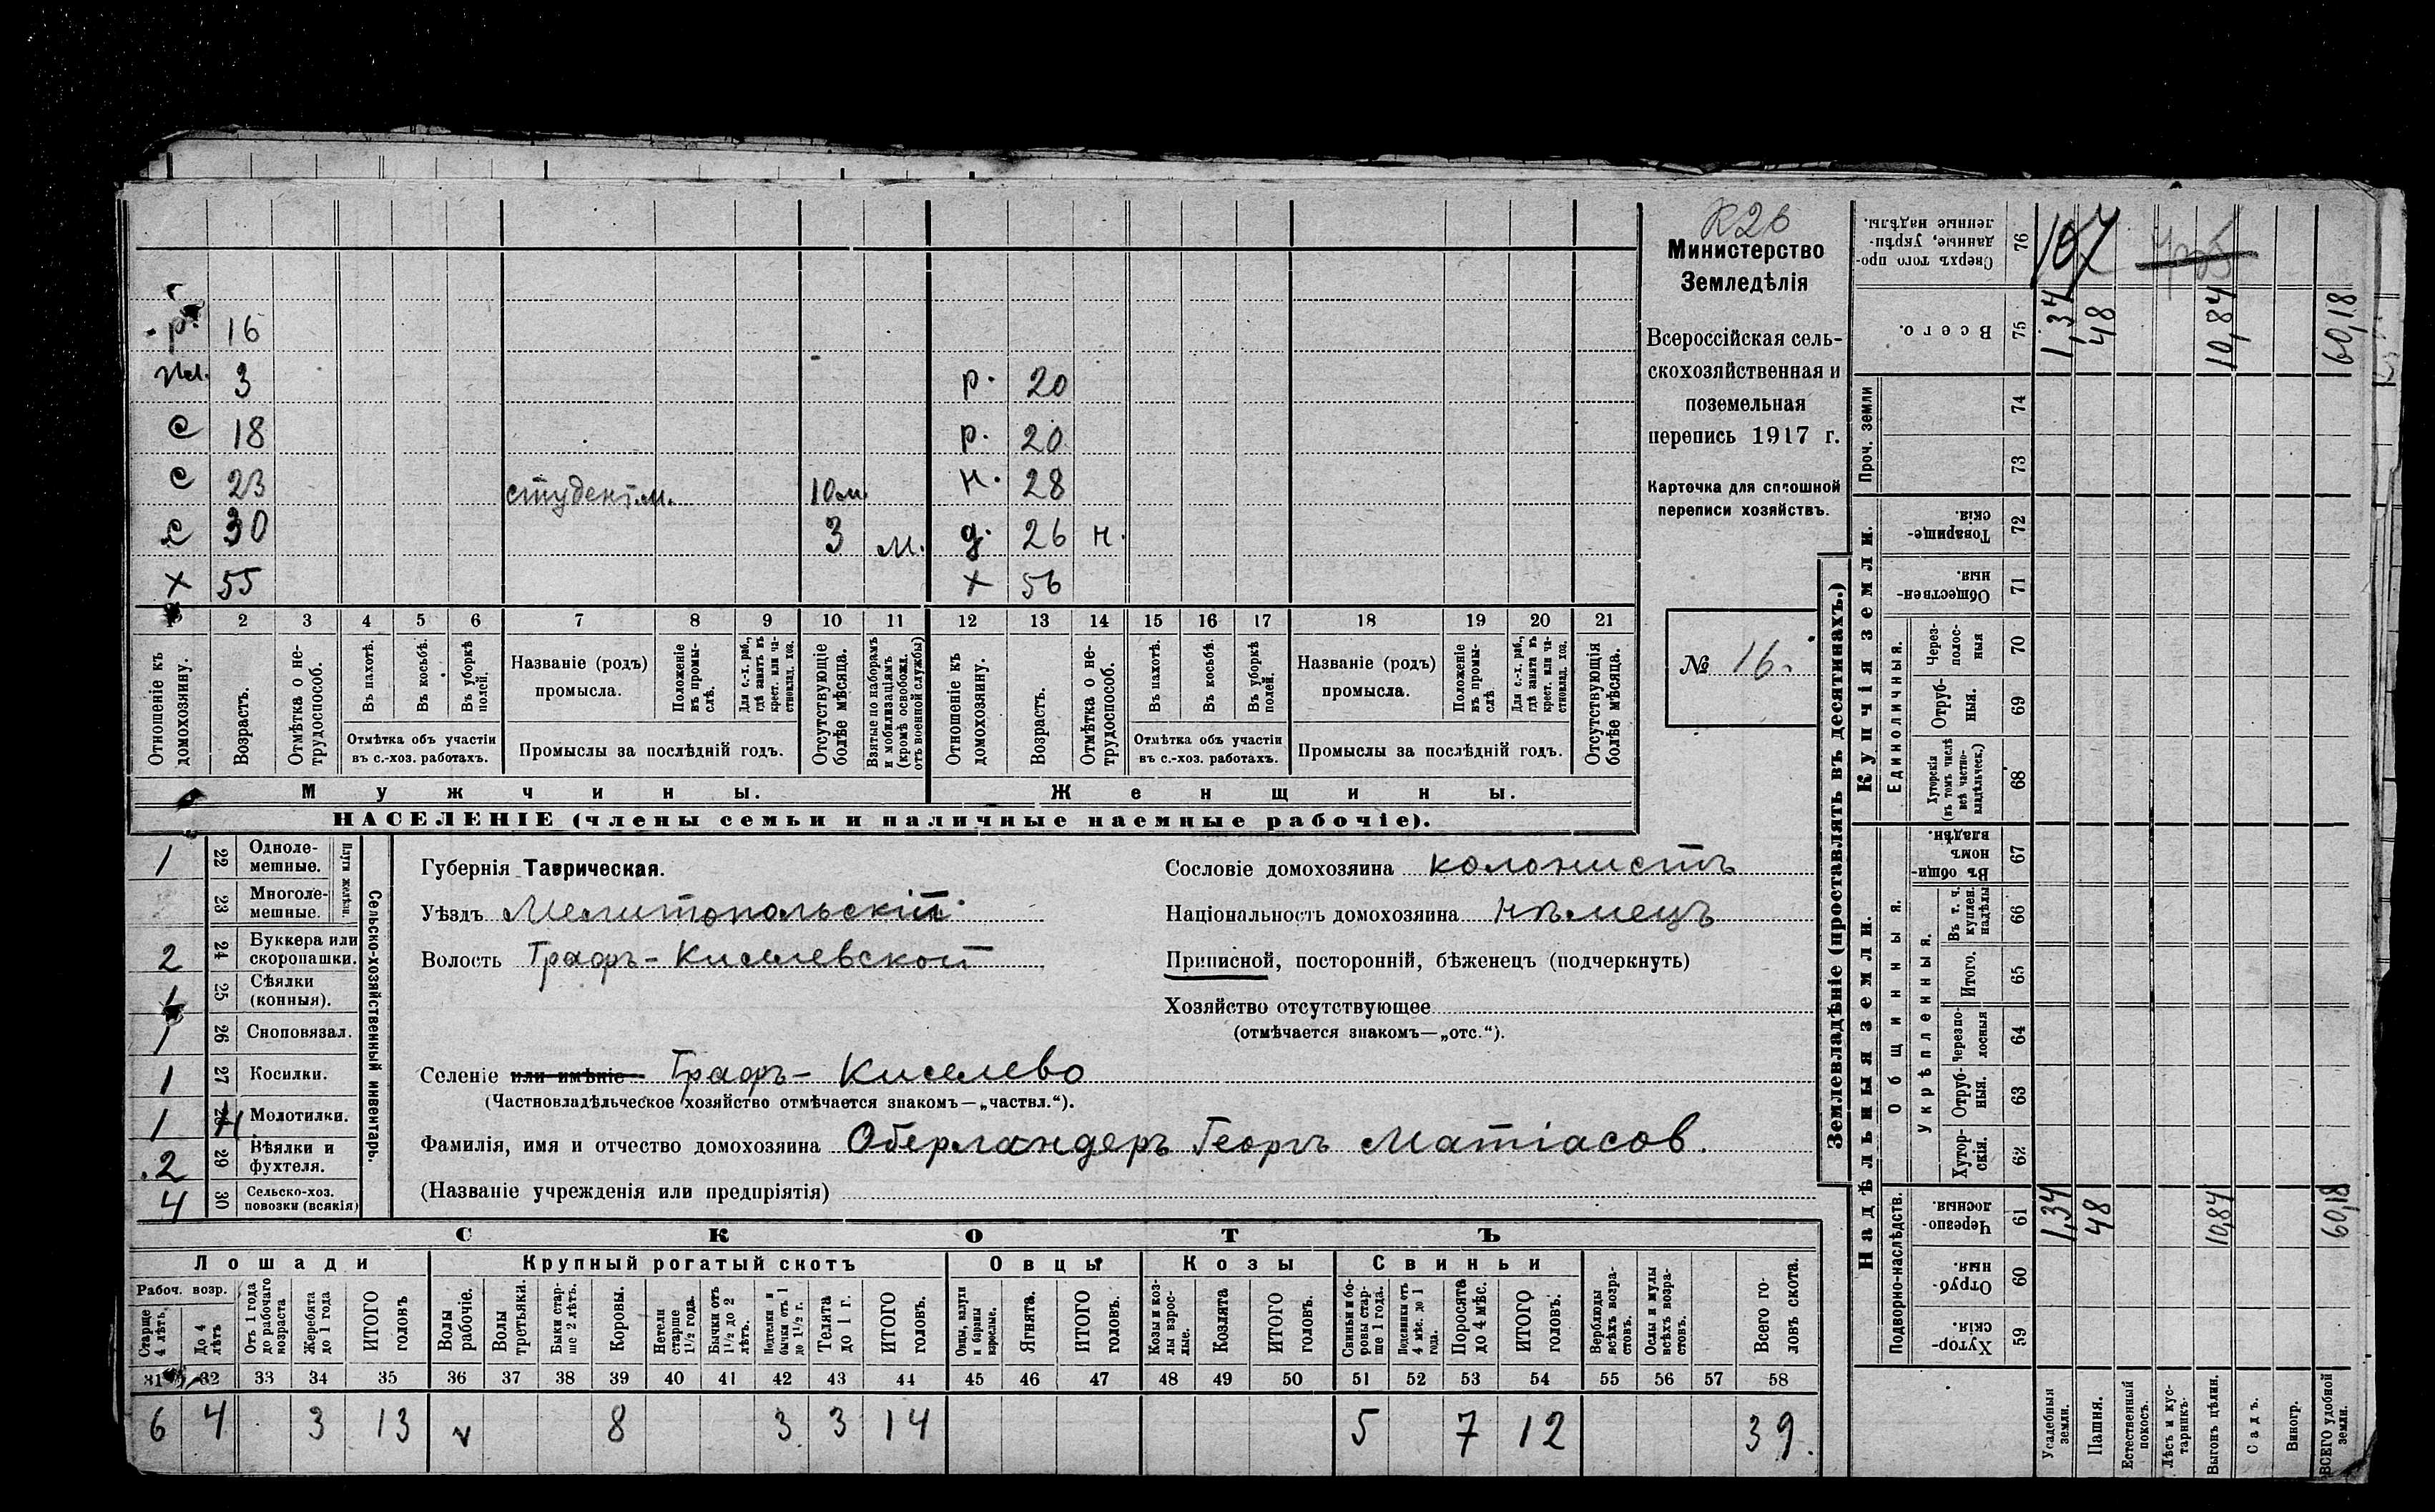 К26
Министерство
Земледѣлія
Всероссійская сель-
скохозяйственная и
поземельная
перепись 1917 г.
Карточка для сплошной
переписи хозяйствъ.
№ 16.
р. 16
3 р. 20
с 18 р. 20
с 23 студент м. 10 м. н. 28
с 30 3 м. д. 26 н.
х 55 х 56
1 2 3 4 5 6 7 8 9 10 11 12 13 14 15 16 17 18 19 20 21
Отношеніе къ домохозяину.
Возрастъ.
Отмѣтка о не-трудоспособ.
Въ пахотѣ.
Въ косьбѣ.
Въ уборкѣ полей.
Отмѣтка объ участіи
въ с.-хоз. работахъ.
Названіе (родъ)
промысла.
Положеніе въ промы-слѣ.
Для с.-х. раб., гдѣ занятъ въ крест. или ча-стновлад. хоз.
Промыслы за послѣдній годъ.
Отсутствующіе болѣе мѣсяца.
Взятые по наборамъ и мобилизаціямъ (кромѣ освобожд. отъ военной службы)
Отношеніе къ домохозяину.
Возрастъ.
Отмѣтка о не-трудоспособ.
Въ пахотѣ.
Въ косьбѣ.
Въ уборкѣ полей.
Отмѣтка объ участіи
въ с.-хоз. работахъ.
Названіе (родъ)
промысла.
Положеніе въ промы-слѣ.
Для с.-х. раб., гдѣ занята въ крест. или ча-стновлад. хоз.
Промыслы за послѣдній годъ.
Отсутствующія болѣе мѣсяца.
Мужчины. Женщины.
НАСЕЛЕНІЕ (члены семьи и наличные наемные рабочіе).
1 22 Одноле-мешные.
23 Многоле-мешные.
Плуги желѣзн.
2 24 Буккера или скоропашки.
1 25 Сѣялки (конныя).
1 26 Сноповязал.
1 27 Косилки.
1 28 Молотилки.
2 29 Вѣялки и фухтеля.
4 30 Сельско-хоз. повозки (всякія)
Сельско-хозяйственный инвентарь.
Губернія Таврическая.
Уѣздъ Мелитопольскій
Волость Графъ-Киселевской
Сословіе домохозяина колонистъ
Національность домохозяина нѣмецъ
Приписной, посторонній, бѣженецъ (подчеркнуть)
Хозяйство отсутствующее
(отмѣчается знакомъ—„отс.“).
Селеніе или имѣніе Графъ-Киселево
(Частновладѣльческое хозяйство отмѣчается знакомъ—„частвл.“).
Фамилія, имя и отчество домохозяина Оберландеръ Георгъ Матіасов.
(Названіе учрежденія или предпріятія)
СКОТЪ
Лошади Крупный рогатый скотъ Овцы Козы Свиньи
Рабоч. возр.
Старше 4 лѣтъ.
До 4 лѣтъ
Отъ 1 года до рабочаго возраста
Жеребята до 1 года
ИТОГО головъ
Волы рабочіе.
Волы третьяки.
Быки стар-ше 2 лѣтъ.
Коровы.
Нетели старше 1½ года.
Бычки отъ 1½ до 2 лѣтъ.
Подтелки и бычки отъ 1 до 1½ г.
Телята до 1 г.
ИТОГО головъ.
Овцы, валухи и бараны взрослые.
Ягнята.
ИТОГО головъ.
Козы и коз-лы взрос-лые.
Козлята
ИТОГО головъ.
Свиньи и бо-ровы стар-ше 1 года.
Подсвинки отъ 4 мѣс. до 1 года.
Поросята до 4 мѣс.
ИТОГО головъ.
Верблюды всѣхъ возра-стовъ.
Ослы и мулы всѣхъ возра-стовъ.
Всего го-ловъ скота.
31 32 33 34 35 36 37 38 39 40 41 42 43 44 45 46 47 48 49 50 51 52 53 54 55 56 57 58
6 4 3 13 8 3 3 14 5 7 12 39.
Землевладѣніе (проставлять въ десятинахъ.)
Сверхъ того про-данные, укрѣп-ленные надѣлы. 76
Всего. 75 1,34 48 10,84 60,18
Проч. земли 74
73
Купчія земли.
Товарище-скія. 72
Обществен-ныя. 71
Единоличныя.
Через-полос-ныя 70
Отруб-ныя. 69
Хуторскія (въ томъ числѣ всѣ частно-владѣльческ.) 68
Надѣльныя земли.
Общинныя.
Въ общин-номъ владѣн. 67
Укрѣпленныя.
Въ т. ч. куплен. надѣлы 66
Итого. 65
Черезпо-лосныя 64
Отруб-ныя. 63
Хутор-скія. 62
Подворно-наслѣдств.
Черезпо-лосныя. 61 1,34 48 10,84 60,18
Отруб-ныя. 60
Хутор-скія. 59
Усадебныя земли.
Пашня.
Естественный покосъ.
Лѣсъ и кус-тарникъ.
Выгонъ цѣлин.
Садъ.
Виногр.
ВСЕГО удобной земли.